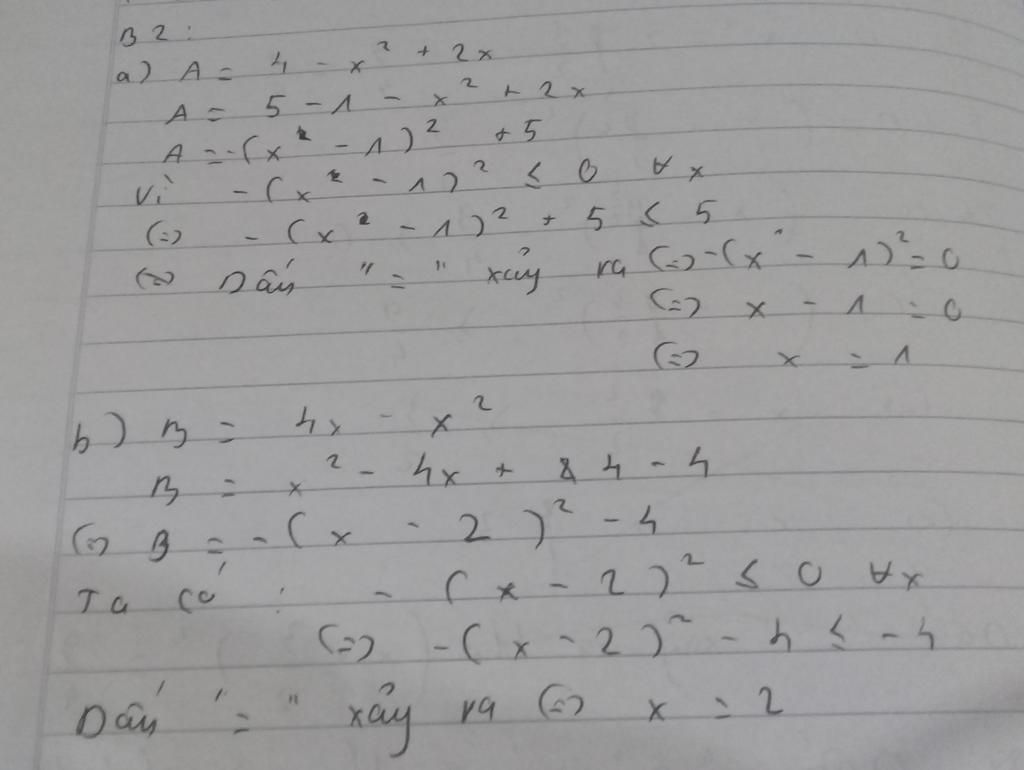 B2:
a) A = 4 - x² + 2x
A = 5 - 1 - x² + 2x
A = -(x² - 1)² + 5
Vì -(x² - 1)² ≤ 0 ∀x
(=) -(x² - 1)² + 5 ≤ 5
(=) Dấu "=" xảy ra (=) -(x - 1)² = 0
(=) x - 1 = 0
(=) x = 1
b) B = 4x - x²
B = x² - 4x + 4 - 4
(=) B = -(x - 2)² - 4
Ta có: -(x - 2)² ≤ 0 ∀x
(=) -(x - 2)² - 4 ≤ -4
Dấu "=" xảy ra (=) x = 2